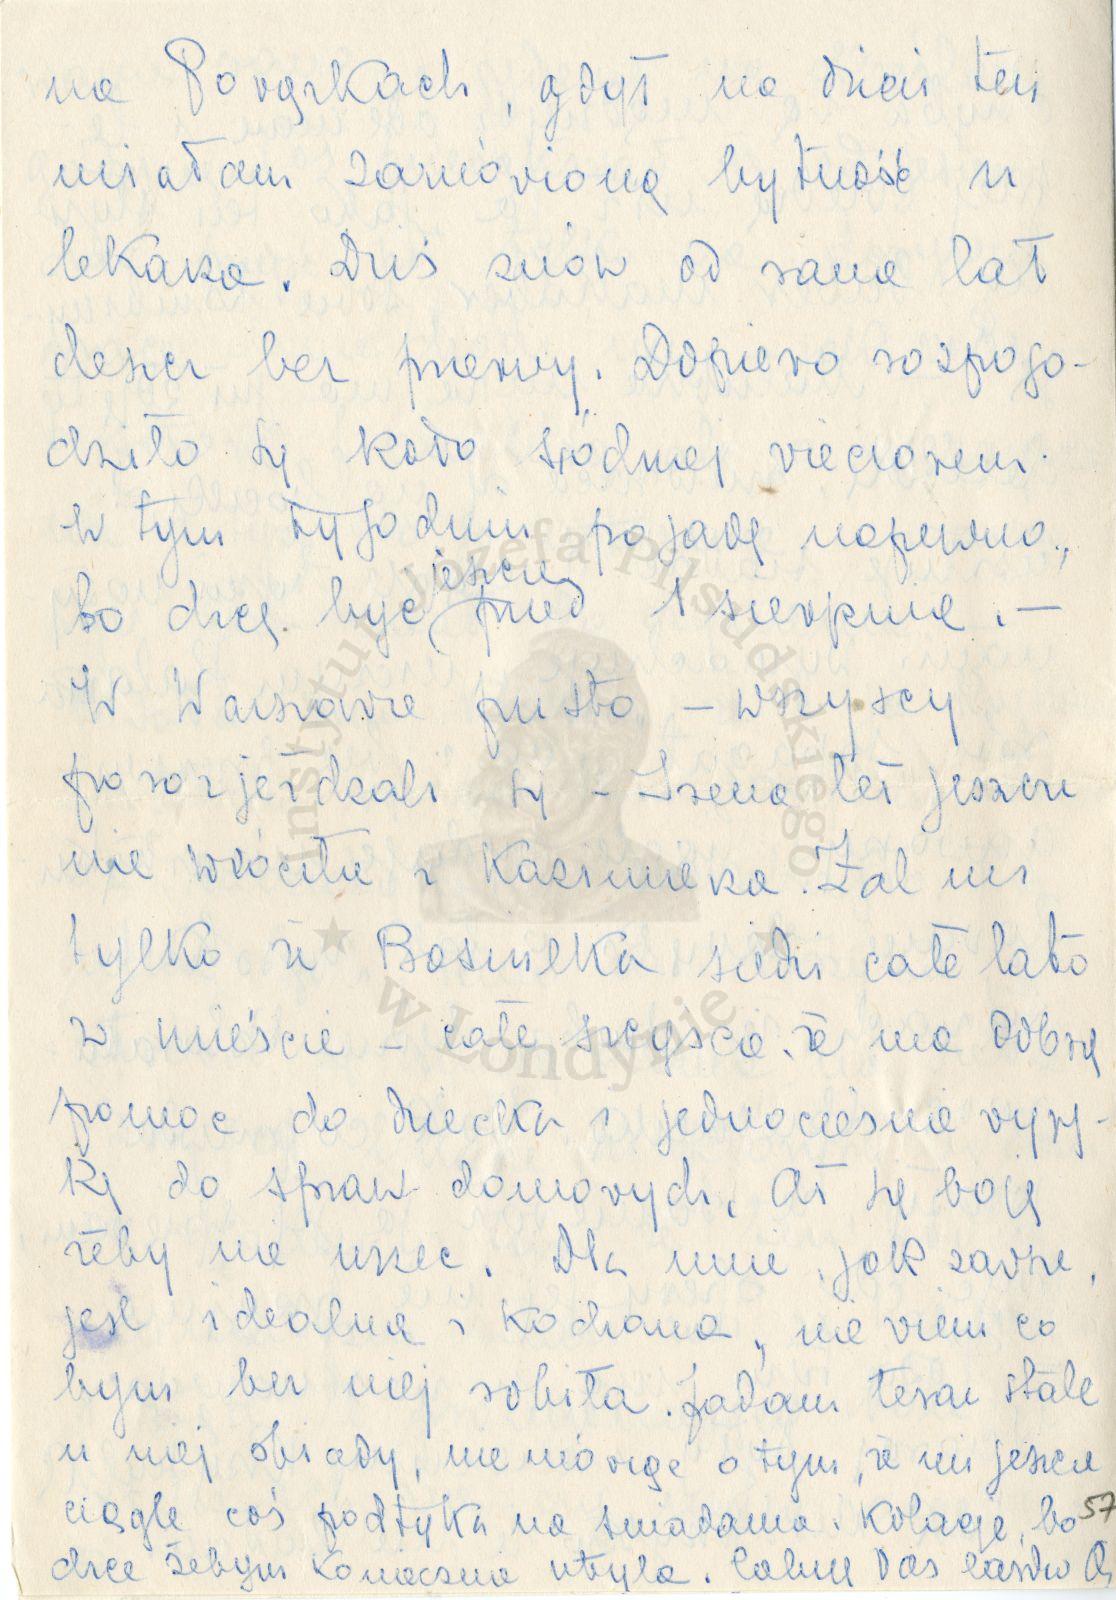 na Powązkach, gdyż na dzień ten
miałam zamówioną bytność u
lekarza. Dziś znów od rana lał
deszcz bez przerwy. Dopiero rozpogo-
dziło się koło siódmej wieczorem.
W tym tygodniu pojadę napewno,
bo chcę być jeszcze przed 1 sierpnia. —
W Warszawie pusto – wszyscy
porozjeżdżali się – Irena też jeszcze
nie wróciła z Kazimierza. Żal mi
tylko że Bośmilka siedzi całe lato
w mieście – całe szczęście, że ma dobrą
pomoc do dziecka i jednocześnie wyrę-
kę do spraw domowych. Aż się boję
żeby nie urzec. Dla mnie, jak zawsze,
jest idealna i kochana, nie wiem co
bym bez niej robiła. Jadam teraz stale
u niej obiady, nie mówiąc o tym, że mi jeszcze
ciągle coś podtyka na śniadania i kolacje, bo
chce żebym koniecznie utyła. Całuję Was bardzo
57
Instytut Józefa Piłsudskiego
w Londynie